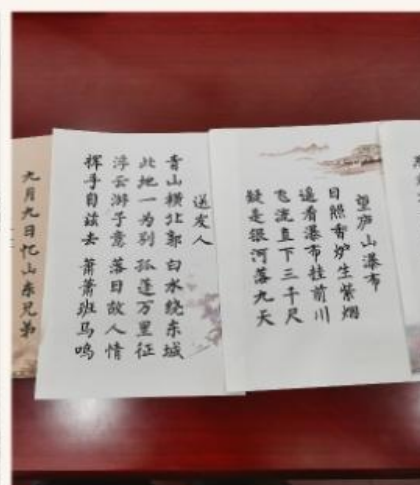 望庐山瀑布
日照香炉生紫烟
遥看瀑布挂前川
飞流直下三千尺
疑是银河落九天
送友人
青山横北郭 白水绕东城
此地一为别 孤蓬万里征
浮云游子意 落日故人情
挥手自兹去 萧萧班马鸣
九月九日忆山东兄弟